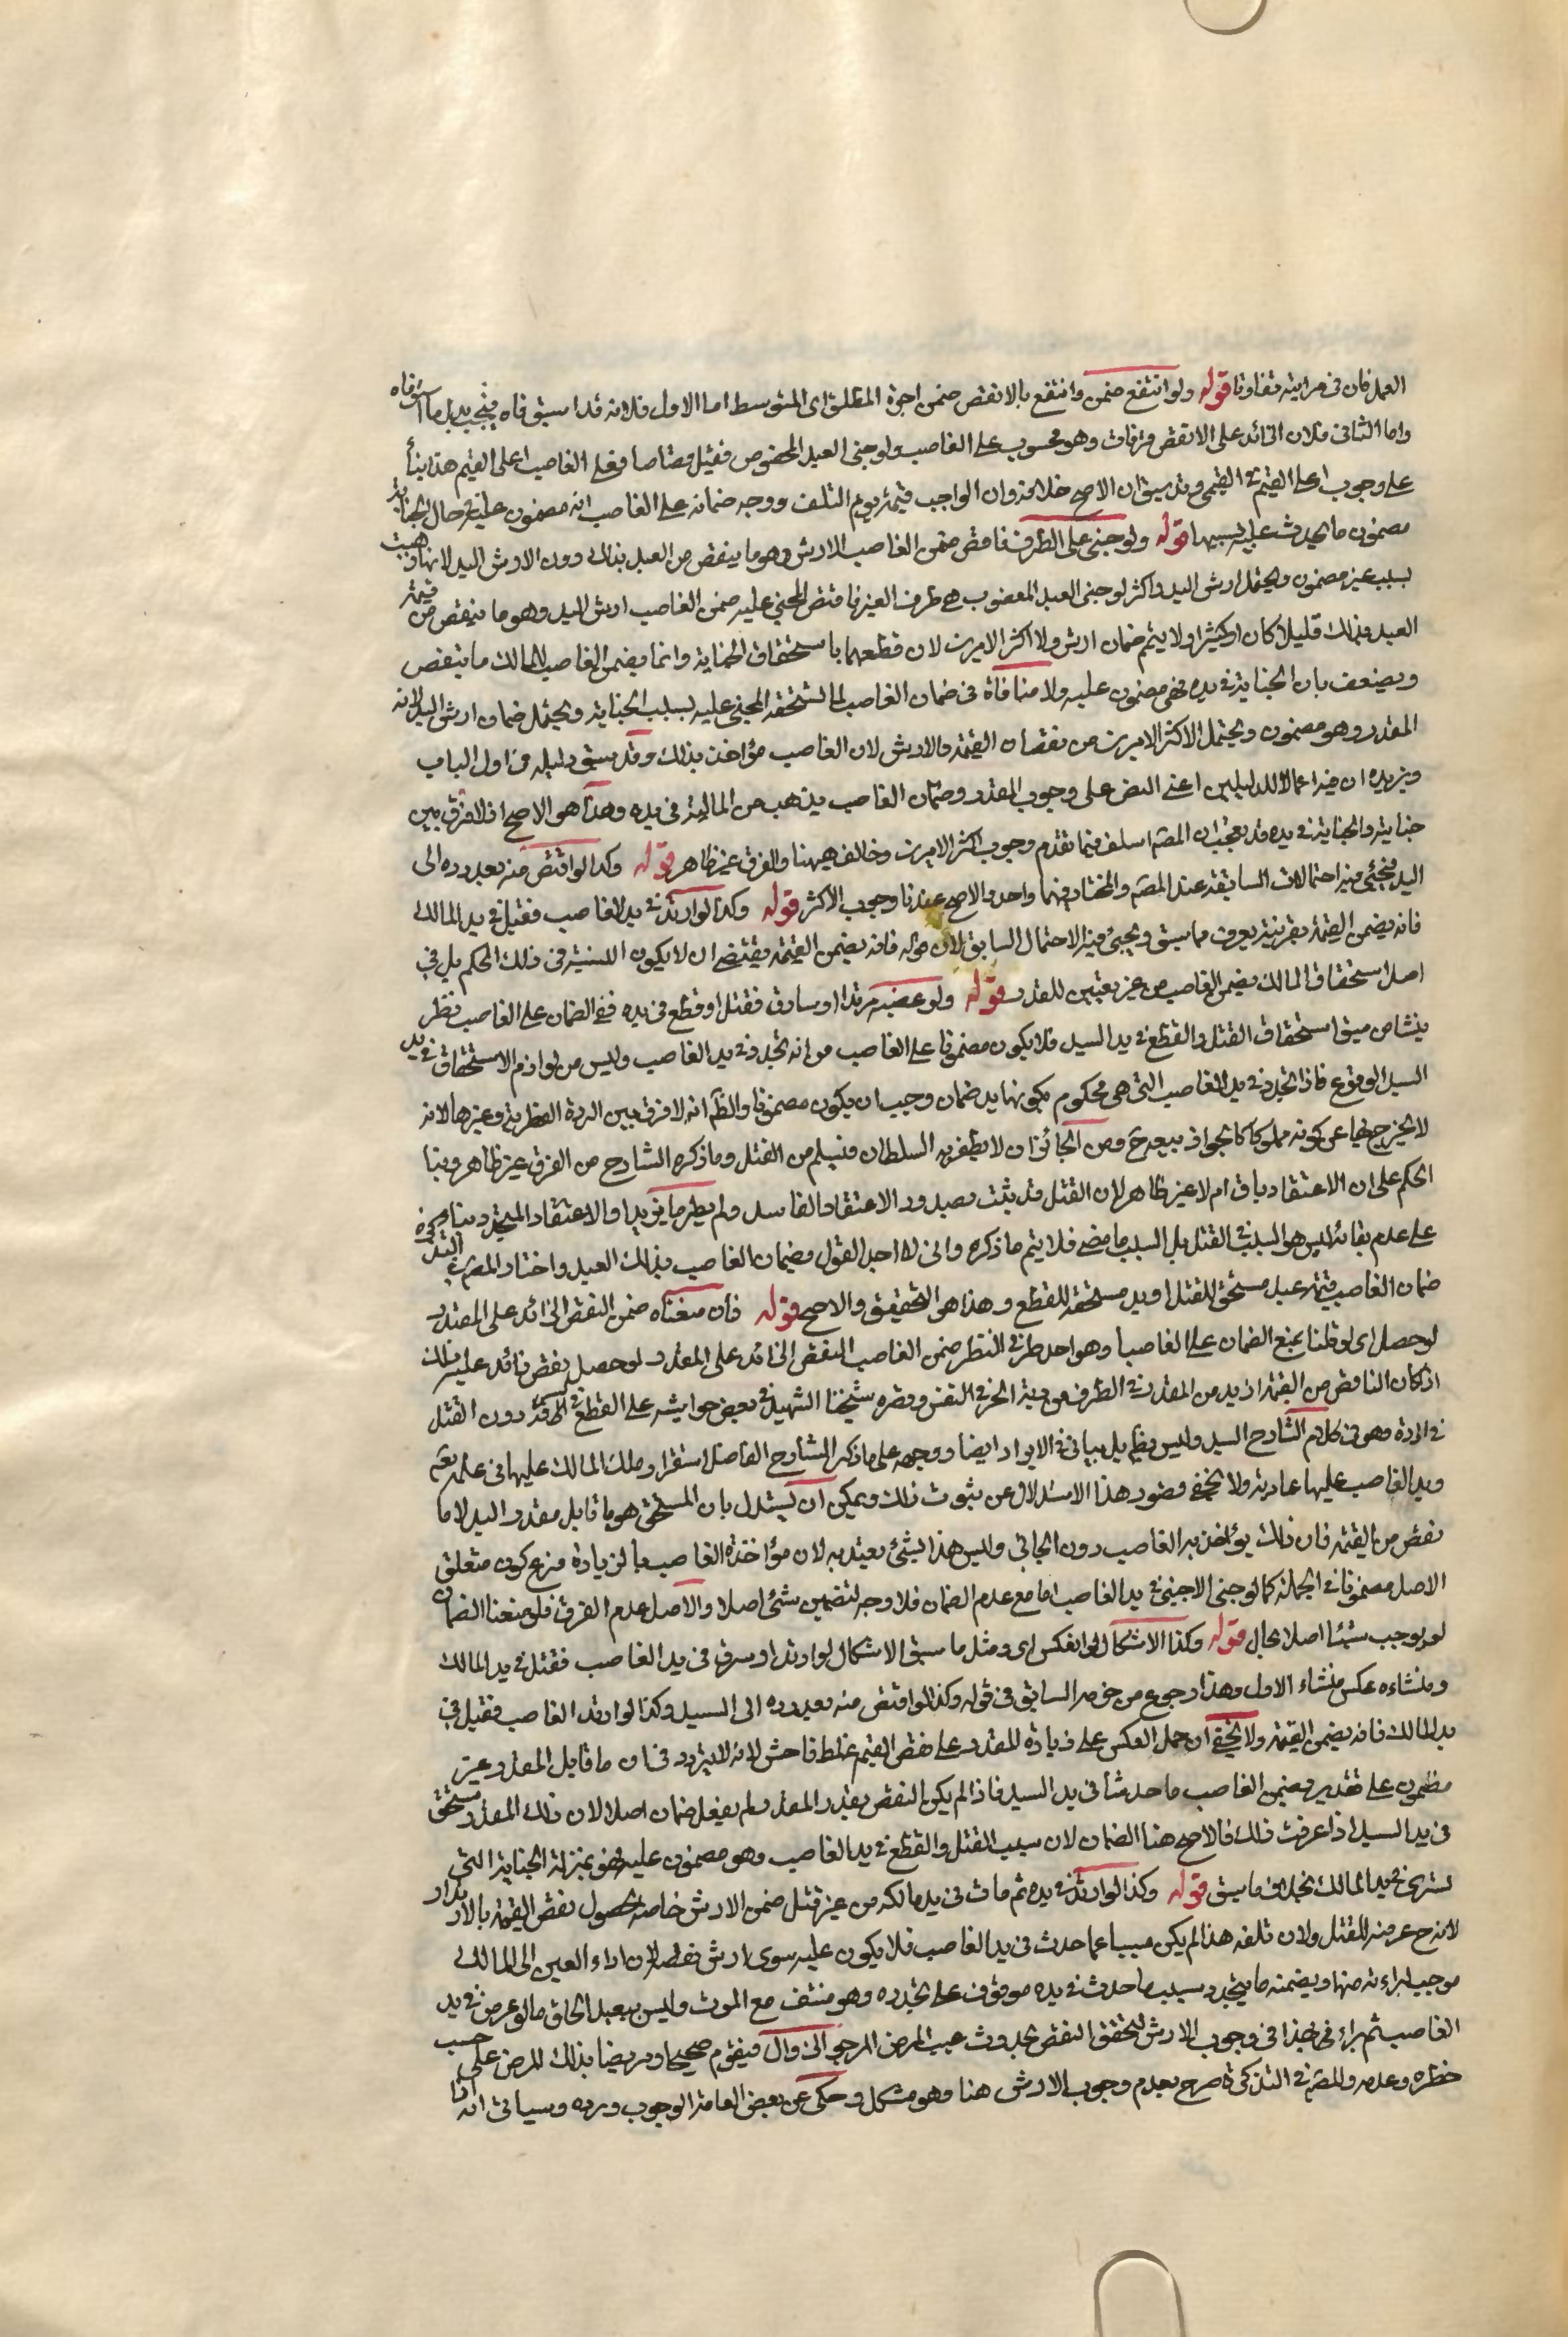 العمل فان في مراتبه تفاوتا قوله ولو انتفع ضمن وانتفع بالانقص ضمن اجرة المطلق اى المتوسط اما الاول فلانه قد استوفاه فيجب بدل ما استوفاه
واما الثانى فلان الزائد على الانقص قد فات وهو محسوب على الغاصب ولو جنى العبد المغصوب فقتل قصاصا فعلى الغاصب اعلى القيم هذا بناء
على وجوب اعلى القيم في القيمى وقد سبق ان الاصح خلافه وان الواجب قيمته يوم التلف ووجه ضمانه على الغاصب انه مضمون عليه في حال الجناية
مضمون ما يحدث عليه بسببها قوله ولو جنى على الطرف فاقتص ضمن الغاصب الارش وهو ما ينقص من العبد بذلك دون الارش اليد لانها ذهبت
بسبب غير مضمون ويحتمل ارش اليد واكثر لو جنى العبد المغصوب على طرف الغير فاقتص المجنى عليه ضمن الغاصب ارش اليد وهو ما ينقص من قيمة
العبد بذلك قليلا كان او كثيرا ولا يتم ضمان ارش ولا اكثر الامرين لان قطعها باستحقاق الجناية وانما يضمن الغاصب للمالك ما ينقص
ويضعف بان الجناية في يده فهي مضمون عليه ولا منافاة في ضمان الغاصب لما يستحقه المجنى عليه بسبب الجناية ويحتمل ضمان ارش اليد لانه
المقدر وهو مضمون ويحتمل الاكثر الامرين من نقصان القيمة والارش لان الغاصب مؤاخذ بذلك وقد سبق دليله في اول الباب
ويزيده ان فيه اعمالا للدليلين اعنى النص على وجوب المقدر وضمان الغاصب يذهب من المالية في يده وهذا هو الاصح اذ لا فرق بين
جنايته والجناية في يده وقد يعجب ان المصـ اسلف فيما تقدم وجوب اكثر الامرين وخالف ههنا والفرق غير ظاهر قوله وكذا لو اقتص منه بعد رده الى
اليد فيجئ فيه احتمالات السابقة عند المصـ والمختار فيهما واحد والاصح عندنا وجوب الاكثر قوله وكذا لو ارتد في يد الغاصب فقتل في يد المالك
فانه يضمن القيمة بقرينة يعرف مما سبق ويجئ فيه الاحتمال السابق لان قوله فانه يضمن القيمة يقتضى ان لا يكون التشبيه في ذلك الحكم بل في
اصل استحقاق المالك يضمن الغاصب من غير تعيين للقدر قوله ولو غصبه مرتدا او سارق فقتل او قطع في يده ففي الضمان على الغاصب نظر
ينشا من سبق استحقاق القتل والقطع في يد السيد فلا يكون مضمونا على الغاصب من انه تجدد في يد الغاصب وليس من لوازم الاستحقاق في يد
السيد الوقوع فاذا تجدد في يد الغاصب التى هى محكوم بكونها يد ضمان وجب ان يكون مضمونا والظ انه لا فرق بين الردة الفطرية وغيرها لانه
لا يخرج بها عن كونه مملوكا كالجواز بيعه ح ومن الجائز ان لا يظفر به السلطان فيسلم من القتل وما ذكره الشارح من الفرق غير ظاهر وبنا
الحكم على ان الاعتقاد باق ام لا غير ظاهر لان القتل قد يثبت بصدور الاعتقاد الفاسد ولم يطر ما يزيله والاعتقاد المتجدد بناء
على عدم بقائه ليس هو السبب في القتل بل السبب ما مضى فلا يتم ما ذكره وانى لا احل القول بضمان الغاصب بذلك العبد واختار المصـ في التذكرة
ضمان الغاصب قيمة عبد مستحق للقتل او يد مستحقة للقطع وهذا هو التحقيق والاصح قوله فان منعناه ضمن النقص الزائد على المقدر
لو حصل اى لو قلنا بمنع الضمان على الغاصب وهو احد طرفى النظر ضمن الغاصب النقص الزائد على المقدر لو حصل نقص زائد عليه بذلك
اذ كان الناقص من القيمة ازيد من المقدر في الطرف من دية الحر في النفس وقصره شيخنا الشهيد في بعض حواشيه على القطع في السرقة دون القتل
في الردة وهو في كلام الشارح السيد وليس بظ بل يباين في الايراد ايضا ووجهه على ما ذكره الشارح الفاضل استقرار ملك المالك عليها في علمه تعالى
ويد الغاصب عليها عادية ولا يخفى قصور هذا الاستدلال عن ثبوت ذلك ويمكن ان يستدل بان المستحق هو ما قابل مقدر اليد لا ما
نقص من القيمة فان ذلك يؤاخذ به الغاصب دون الجانى وليس هذا بشئ يعتد به لان مؤاخذة الغاصب بالزيادة فرع كون متعلق
الاصل مضمونا في الجملة كما لو جنى الاجنبى في يد الغاصب اما مع عدم الضمان فلا وجه لتضمين شئ اصلا والاصل عدم الفرق فلو منعنا الضمان
لم يوجب شيئا اصلا بحال قوله وكذا الاشكال لو انعكس اى ومثل ما سبق الاشكال لو ارتد او سرق في يد الغاصب فقتل في يد المالك
ومنشاءه عكس منشاء الاول وهذا رجوع من جزمه السابق في قوله وكذا لو اقتص منه بعد رده الى السيد وكذا لو ارتد الغاصب فقتل في
يد المالك فانه يضمن القيمة ولا يخفى ان حمل العكس على زيادة المقدر على نقص القيم غلط فاحش لانه لا يتردد في ان ما قابل المقدر وغير
مضمون على تقدير يضمن الغاصب ما حدث في يد السيد فاذا لم يكن النقص بقدر المقدر لم يعقل ضمان اصلا لان ذلك المقدر مستحق
في يد السيد اذا عرفت ذلك فالاصح هنا الضمان لان سبب القتل والقطع في يد الغاصب وهو مضمون عليه فهو بمنزلة الجناية التى
تسرى في يد المالك بخلاف ما سبق قوله وكذا لو ارتد في يده ثم مات في يد مالكه من غير قتل ضمن الارش خاصة لحصول نقص القيمة بالارتداد
لانه ح عرضه للقتل ولان تلفه هذا لم يكن مسببا عما حدث في يد الغاصب فلا يكون عليه سوى ارش نقصه لان اداء العين الى المالك
موجب لبراءته منها ويضمنه ما يتجدد بسبب ما حدث في يده موقوف على تجدده وهو منتف مع الموت وليس ببعيد الحاق ما لو عرض في يد
الغاصب ثم براء في هذا في وجوب الارش لتحقق النقص بحدوث عيب المرض المرجو الزوال فيقوم صحيحا ومريضا بذلك المرض على حسب
خطره وعدمه والمصـ في التذكرة صرح بعدم وجوب الارش هنا وهو مشكل وحكى عن بعض العامة الوجوب ورده وسياتى انه اذا